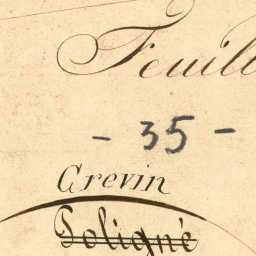 Feuill
- 35 -
Crevin
Poligné